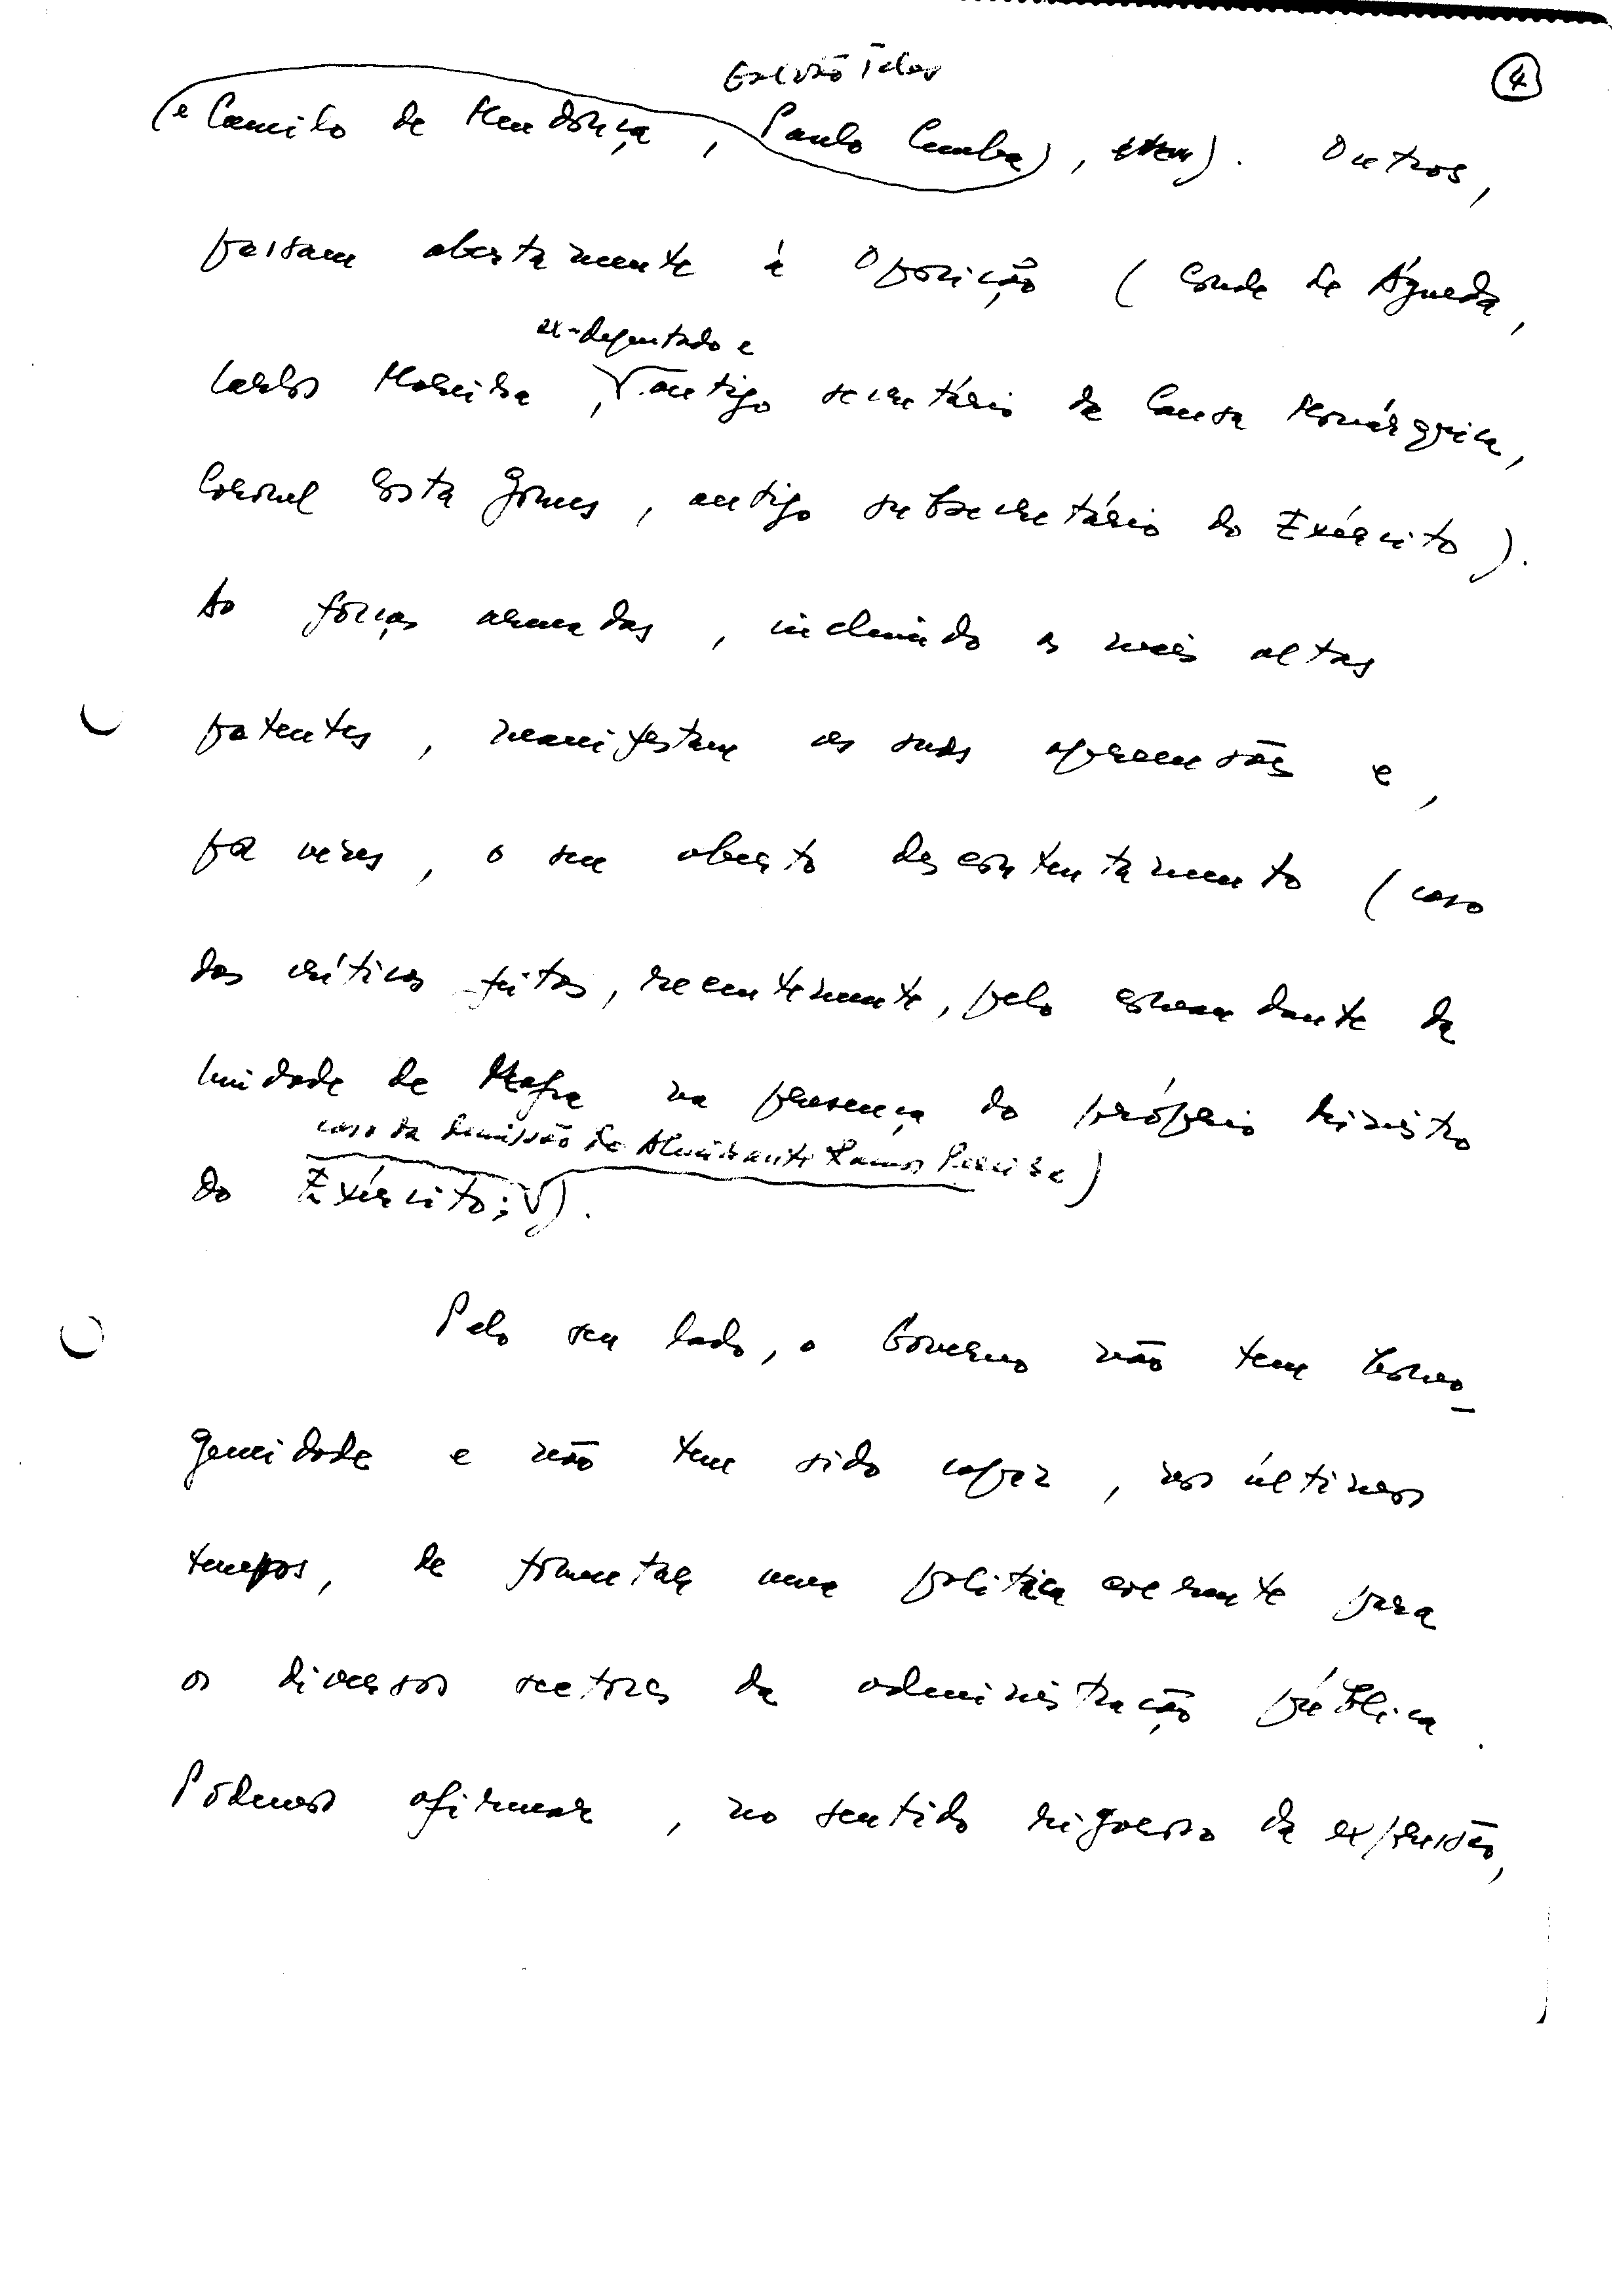 4
Galvão Teles
(e Camilo de Mendonça, Paulo Cunha), etc.). Outros,
passam abertamente à Oposição (Conde de Águeda,
ex-deputado e
Carlos Moreira, antigo secretário da Causa Monárquica,
Coronel Costa Gomes, antigo subsecretário do Exército).
As forças armadas, incluindo as mais altas
patentes, manifestam as suas apreensões e,
por vezes, o seu aberto descontentamento (caso
das críticas feitas, recentemente, pelo comandante da
Unidade de Mafra na presença do próprio Ministro
caso da demissão do Almirante Ramos Pereira)
do Exército;).
Pelo seu lado, o Governo não tem homo-
geneidade e não tem sido capaz, nos últimos
tempos, de fomentar uma política coerente para
os diversos sectores da administração pública.
Podemos afirmar, no sentido rigoroso da expressão,